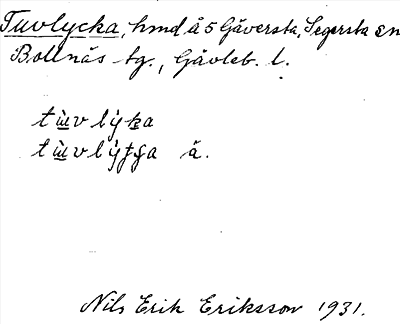 Tuvlycka, hmd å 5 Gäversta, Segersta sn
Bollnäs tg., Gävleb. l.
tɯ̀vlýka
ä.
Nils Erik Eriksson 1931.